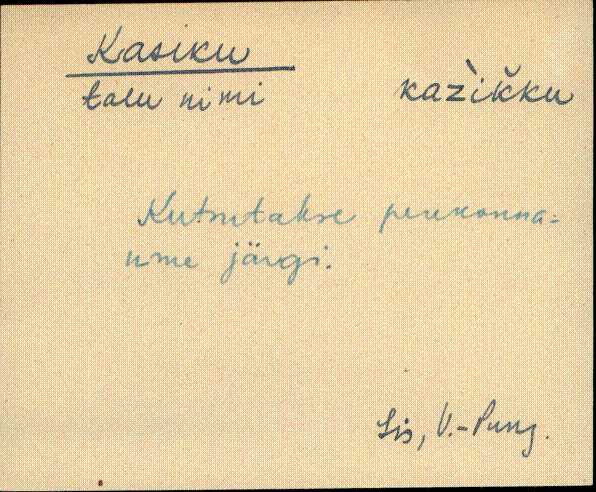 Kasiku
talu nimi kaz̀ik̆ku
Kutsutakse perekonna-
nime järgi.
Lis, V.-Pung.